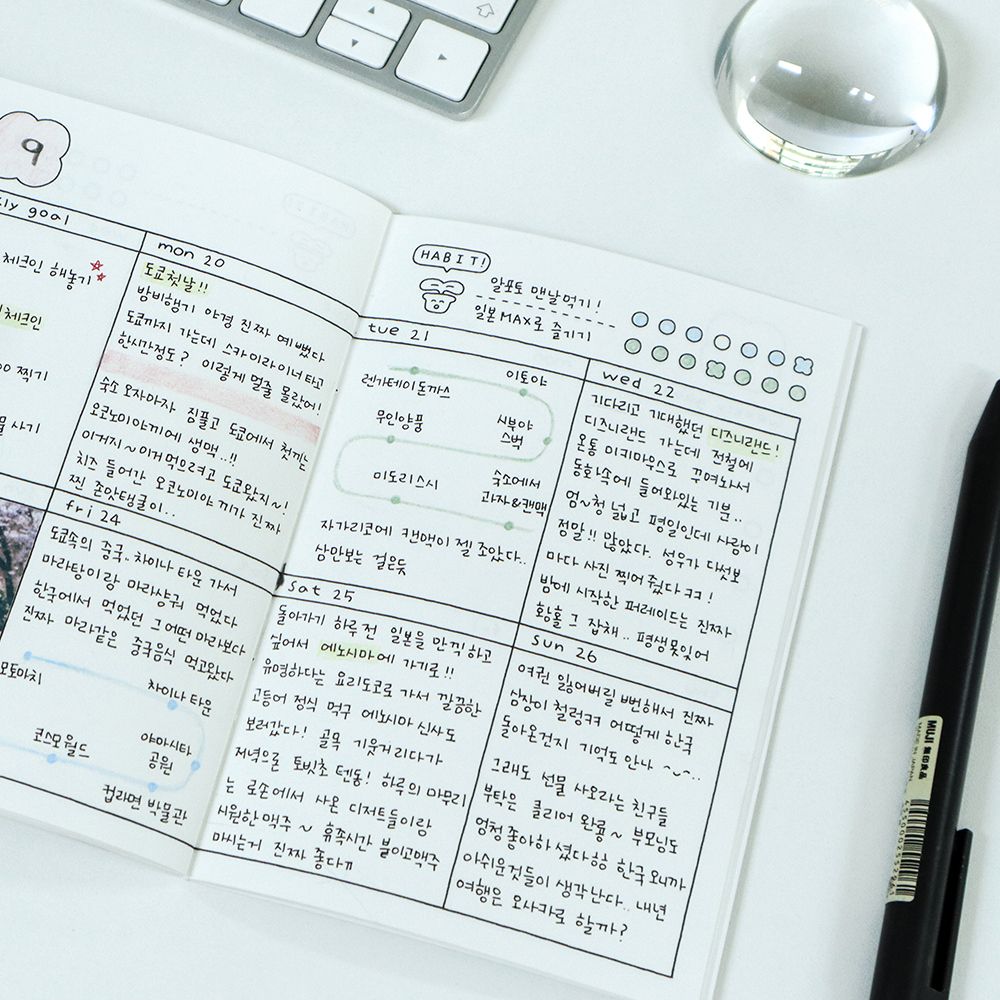 9
ly goal
체크인 해놓기
체크인
00 찍기
사기
mon 20
도쿄첫날!!
밤비행기 야경 진짜 예뻤다
도쿄까지 가는데 스카이라이너타고
한시간정도? 이렇게 멀줄 몰랐어!
숙소 오자마자 짐풀고 도쿄에서 첫끼는
오코노미야끼에 생맥..!!
이거지~ 이거 먹으려고 도쿄왔지~!
치즈 들어간 오코노미야끼가 진짜
찐 존맛탱글이..
fri 24
도쿄속의 중국.. 차이나 타운 가서
마라탕이랑 마라샹궈 먹었다
한국에서 먹었던 그 어떤 마라보다
진짜 마라같은 중국음식 먹고왔다
모토마치
차이나 타운
야마시타
공원
코스모월드
컵라면 박물관
HABIT!
알포토 맨날먹기!
일본 MAX로 즐기기
tue 21
렌가테이 돈까스
이토야
무인양품
시부야
스벅
미도리스시
숙소에서
과자&캔맥
자가리코에 캔맥이 젤 좋았다..
상만보는 걸은듯
wed 22
기다리고 기대했던 디즈니랜드!
디즈니랜드 가는데 전철에
온통 미키마우스로 꾸며놔서
동화속에 들어와있는 기분..
엄~청 넓고 평일인데 사람이
정말!! 많았다. 성우가 다섯보
마다 사진 찍어줬다ㅋㅋ!
밤에 시작한 퍼레이드는 진짜
황홀 그 잡채.. 평생못잊어
sat 25
돌아가기 하루 전 일본을 만끽하고
싶어서 에노시마에 가기로!!
유명하다는 요리도코로 가서 깔끔한
고등어 정식 먹구 에노시마 신사도
보러갔다! 골목 기웃거리다가
저녁으로 토빗쵸 텐동! 하루의 마무리
는 로손에서 사온 디저트들이랑
시원한 맥주 ~ 휴족시간 붙이고맥주
마시는거 진짜 좋다ㅠ
sun 26
여권 잃어버릴 뻔해서 진짜
심장이 철렁ㅋㅋ 어떻게 한국
돌아온건지 기억도 안나 ~.~..
그래도 선물 사오라는 친구들
부탁은 클리어 완룡~ 부모님도
엄청 좋아하셨다항 한국 오니까
아쉬운것들이 생각난다.. 내년
여행은 오사카로 할까?
MUJI 無印良品
MADE IN JAPAN